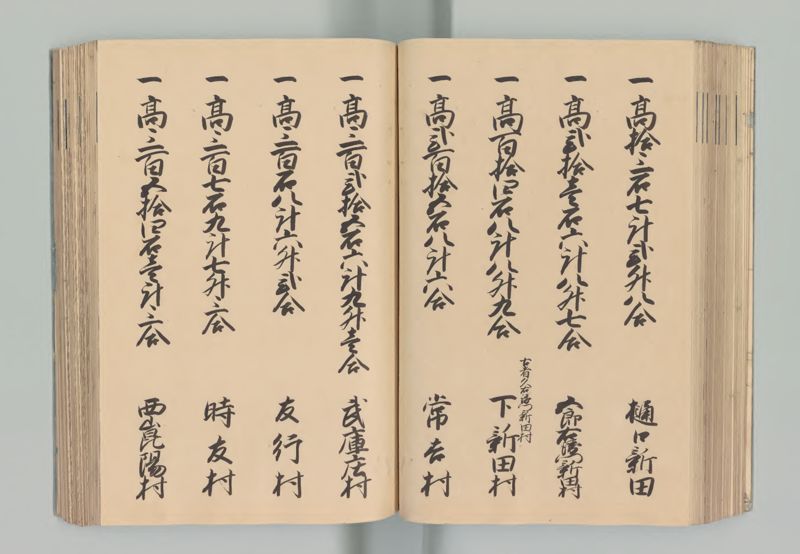 一 高拾三石七斗弐升八合 樋口新田
一 高弐拾壱石六斗八升七合 六郎右衛門新田村
一 高百拾四石八斗八升九合 下新田村
古者久右衛門新田村
一 高弐百拾五石八斗六合 常吉村
一 高三百弐拾五石六斗九升壱合 武庫庄村
一 高三百石八斗六升弐合 友行村
一 高三百七石九斗七升三合 時友村
一 高三百五拾四石壱斗三合 西昆陽村